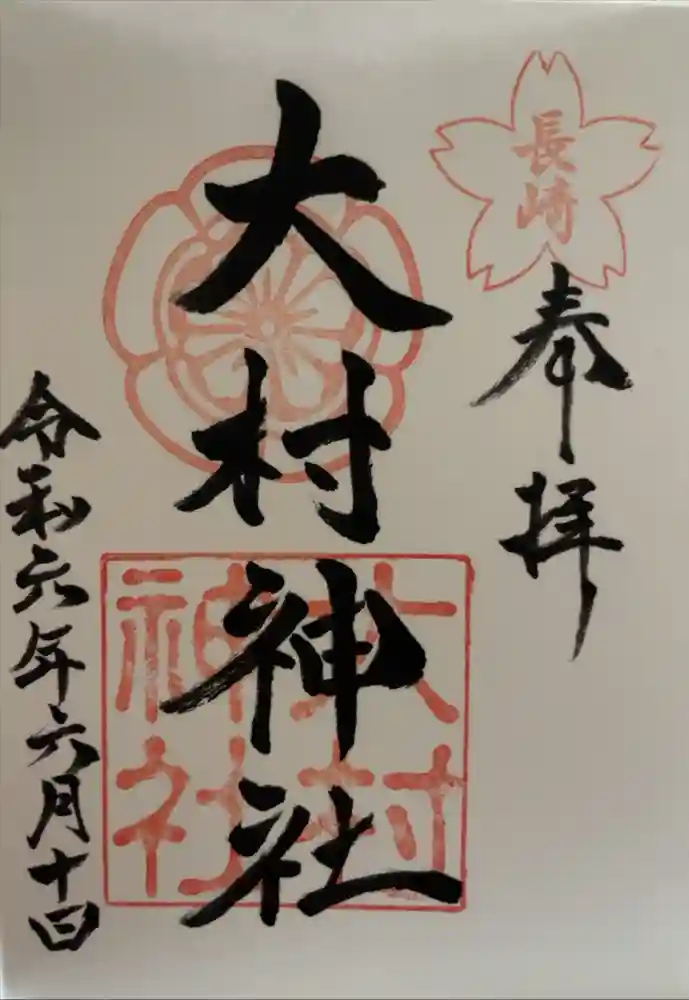 長崎
奉拝
大村神社
大村神社
令和六年六月十四日